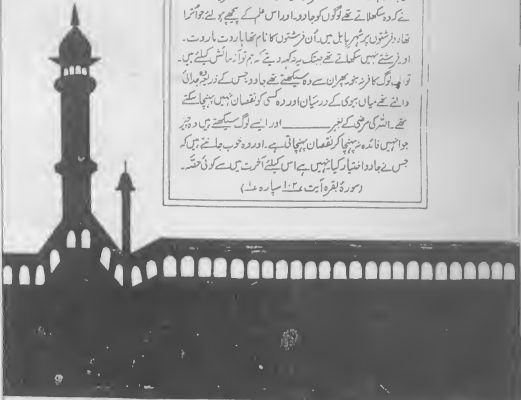 نے کہ وہ سکھلاتے تھے لوگوں کو جادو۔ اور اس علم کے پیچھے ہولئے جو اُترا
تھا دو فرشتوں پر شہر بابل میں اُن فرشتوں کا نام تھا ہاروت ماروت۔
اور فرشتے نہیں سکھاتے تھے جبتک یہ نہ کہہ دیتے کہ ہم تو آزمائش کیلئے ہیں۔
تو لوگ کافر نہ ہو پھر ان سے وہ سیکھتے تھے جادو جس کے ذریعہ جدائی
ڈالتے تھے میاں بیوی کے درمیان اور وہ کسی کو نقصان نہیں پہنچا سکتے
تھے۔ اللہ کی مرضی کے بغیر ـــــــــ اور ایسے لوگ سیکھتے ہیں وہ چیز
جو انہیں فائدہ نہ پہنچا کر نقصان پہنچاتی ہے۔ اور وہ خوب جانتے ہیں کہ
جس نے جادو اختیار کیا نہیں ہے اس کیلئے آخرت میں سے کوئی حصّہ۔
(سورۃ بقرہ آیت ۱۰۲ سپارہ ۱)